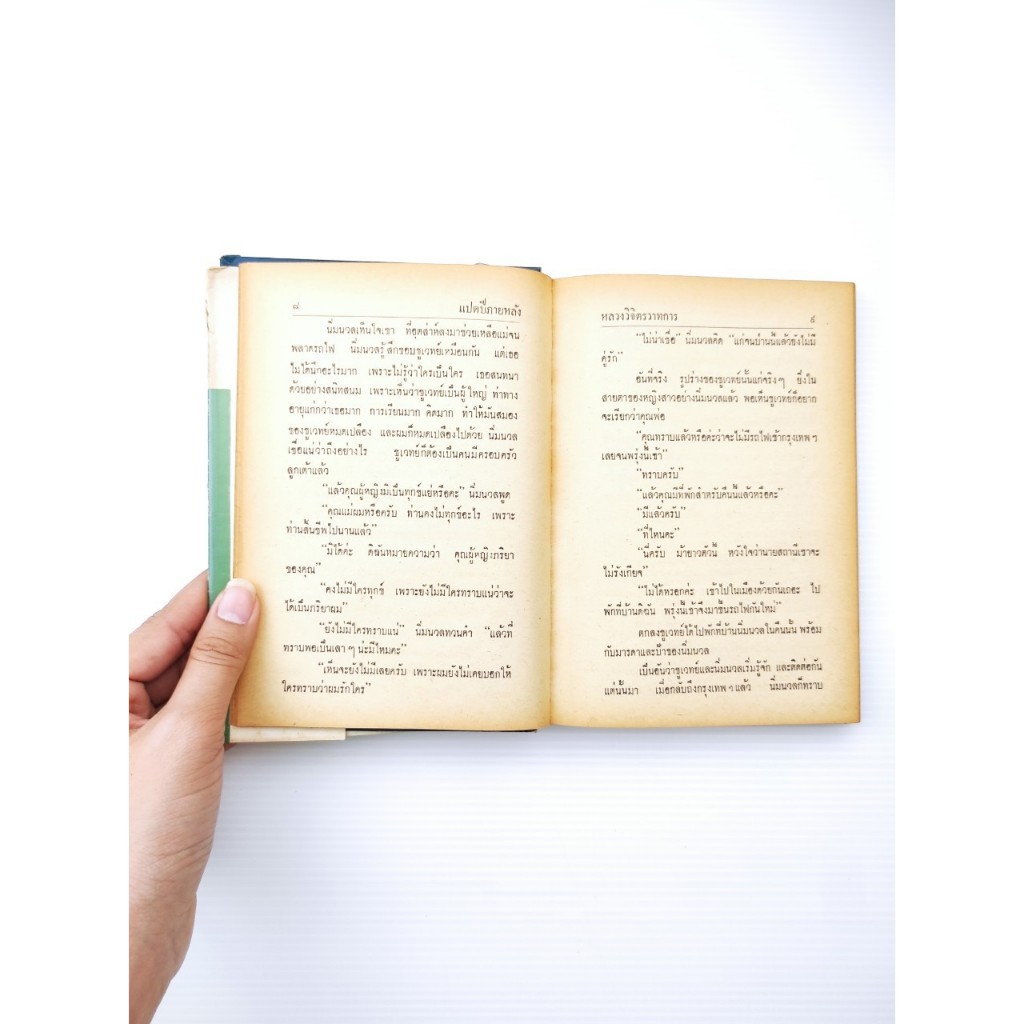 ๘ แปดปีภายหลัง
นิ่มนวลเห็นใจเขา ที่อุตส่าห์ลงมาช่วยเหลือแม่จน
พลาดรถไฟ นิ่มนวลรู้สึกชอบชูเวทย์เหมือนกัน แต่เธอ
ไม่ได้นึกอะไรมาก เพราะไม่รู้ว่าใครเป็นใคร เธอสนทนา
ด้วยอย่างสนิทสนม เพราะเห็นว่าชูเวทย์เป็นผู้ใหญ่ ท่าทาง
อายุแก่กว่าเธอมาก การเรียนมาก คิดมาก ทำให้มันสมอง
ของชูเวทย์หมดเปลือง และผมก็หมดเปลืองไปด้วย นิ่มนวล
เชื่อแน่ว่าถึงอย่างไร ชูเวทย์ก็ต้องเป็นคนมีครอบครัว
ลูกเต้าแล้ว
“แล้วคุณผู้หญิงมิเป็นทุกข์แย่หรือคะ” นิ่มนวลพูด
“คุณแม่ผมหรือครับ ท่านคงไม่ทุกข์อะไร เพราะ
ท่านสิ้นชีพไปนานแล้ว”
“มิได้ค่ะ ดิฉันหมายความว่า คุณผู้หญิงภริยา
ของคุณ”
“คงไม่มีใครทุกข์ เพราะยังไม่มีใครทราบแน่ว่าจะ
ได้เป็นภริยาผม”
“ยังไม่มีใครทราบแน่” นิ่มนวลทวนคำ “แล้วที่
ทราบพอเป็นเลา ๆ น่ะมีไหมคะ”
“เห็นจะยังไม่มีเลยครับ เพราะผมยังไม่เคยบอกให้
ใครทราบว่าผมรักใคร”
หลวงวิจิตรวาทการ ๙
“ไม่น่าเชื่อ” นิ่มนวลคิด “แก่จนป่านนี้แล้วยังไม่มี
คู่รัก”
อันที่จริง รูปร่างของชูเวทย์นั้นแก่จริง ๆ ยิ่งใน
สายตาของหญิงสาวอย่างนิ่มนวลแล้ว พอเห็นชูเวทย์ก็อยาก
จะเรียกว่าคุณพ่อ
“คุณทราบแล้วหรือคะว่าจะไม่มีรถไฟเข้ากรุงเทพ ฯ
เลยจนพรุ่งนี้เช้า”
“ทราบครับ”
“แล้วคุณมีที่พักสำหรับคืนนี้แล้วหรือคะ”
“มีแล้วครับ”
“ที่ไหนคะ”
“นี่ครับ ม้ายาวตัวนี้ หวังใจว่านายสถานีเขาจะ
ไม่รังเกียจ”
“ไม่ได้หรอกค่ะ เข้าไปในเมืองด้วยกันเถอะ ไป
พักที่บ้านดิฉัน พรุ่งนี้เช้าจึงมาขึ้นรถไฟกันใหม่”
ตกลงชูเวทย์ได้ไปพักที่บ้านนิ่มนวลในคืนนั้น พร้อม
กับมารดาและป้าของนิ่มนวล
เป็นอันว่าชูเวทย์และนิ่มนวลเริ่มรู้จัก และติดต่อกัน
แต่นั้นมา เมื่อกลับถึงกรุงเทพ ฯ แล้ว นิ่มนวลก็ทราบ